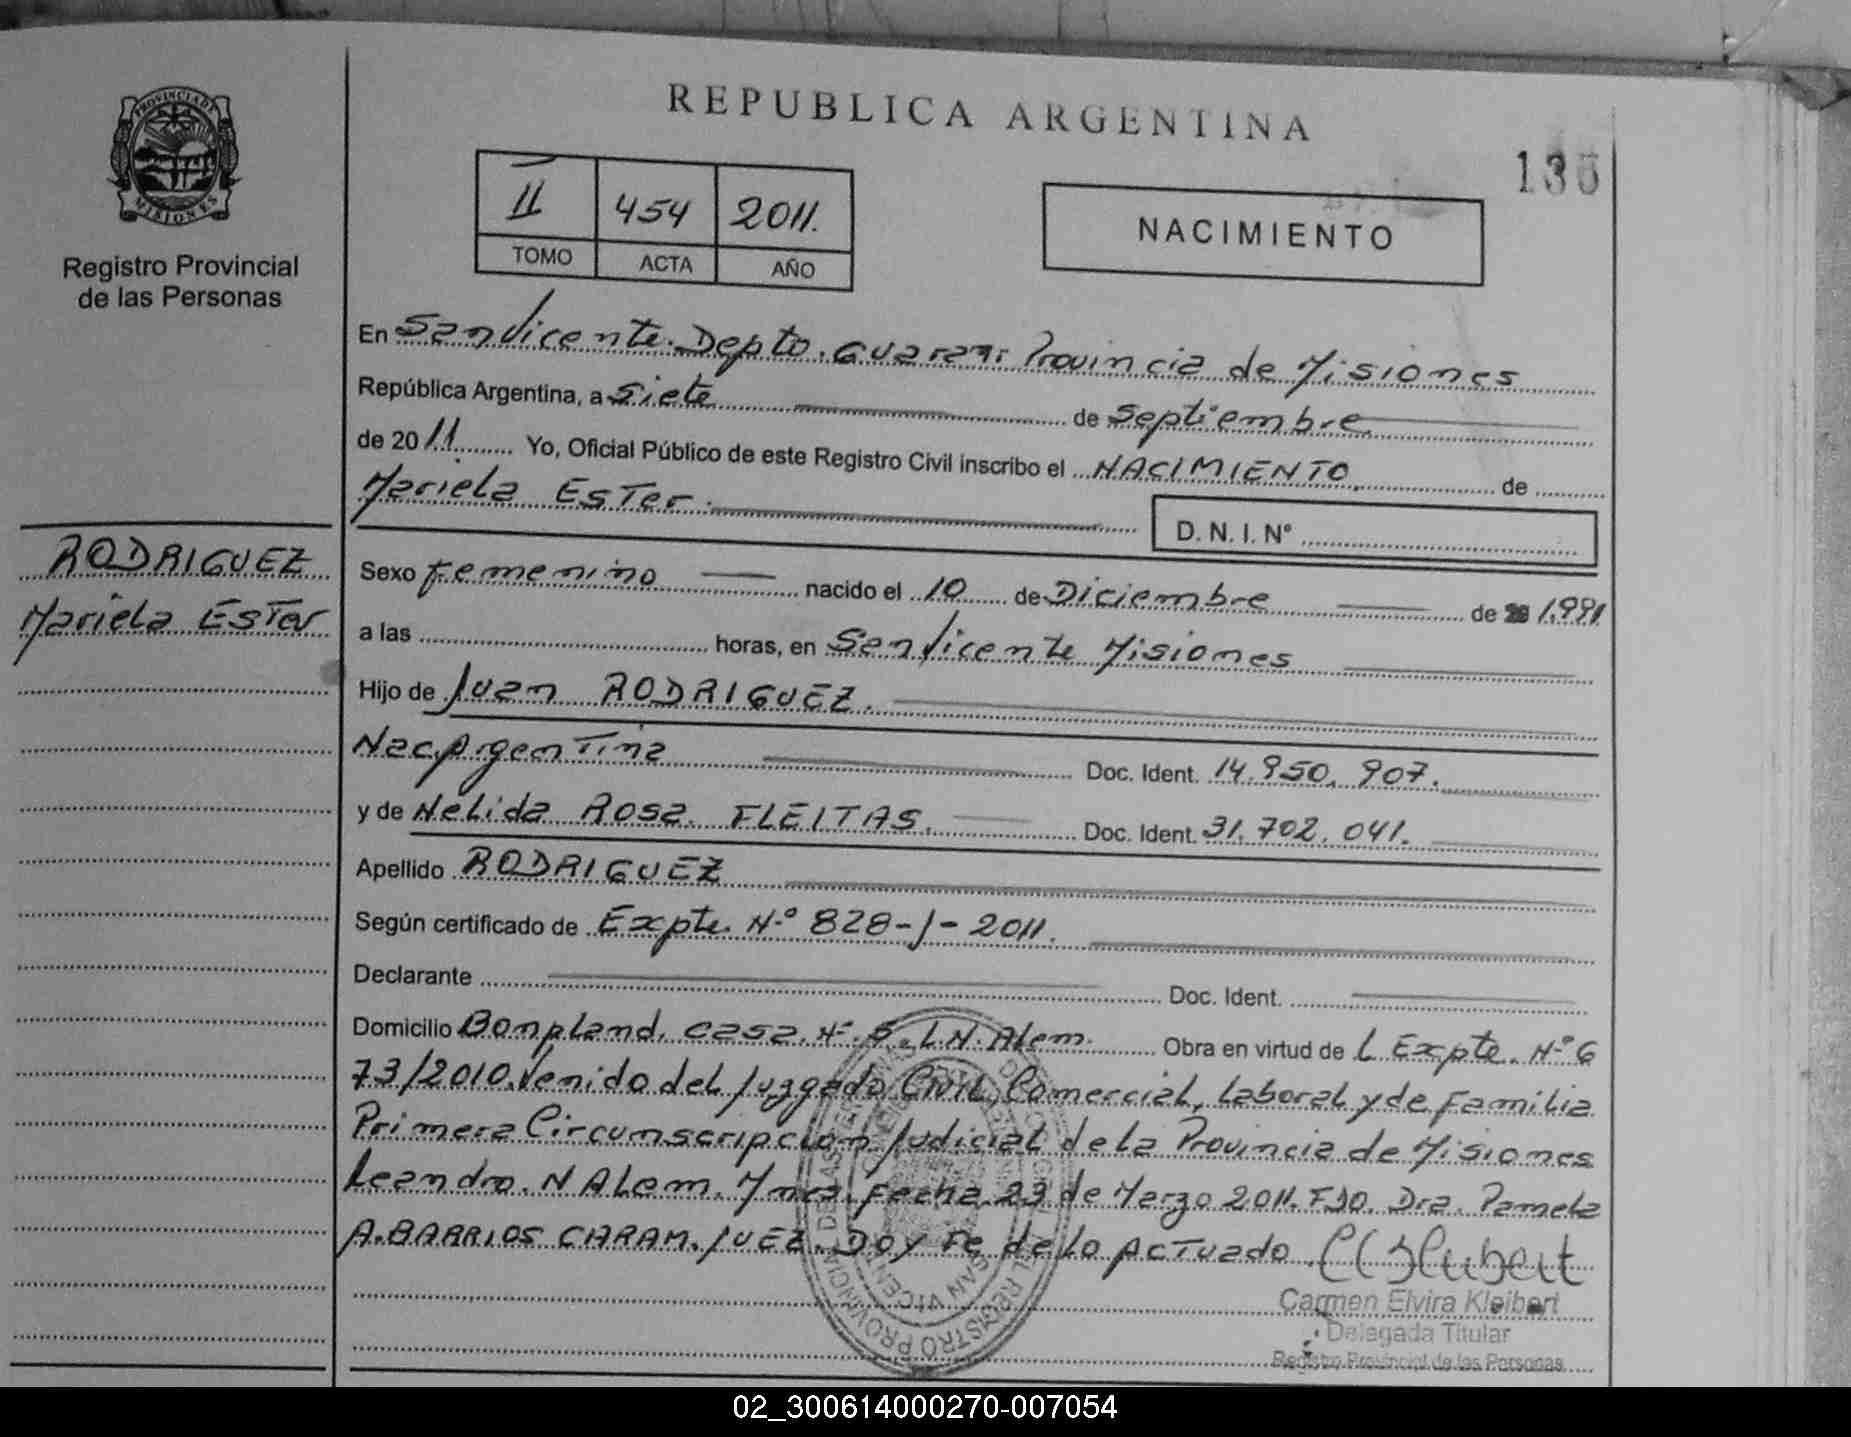 REPUBLICA ARGENTINA
PROVINCIA DE
MISIONES
Registro Provincial
de las Personas
II 454 2011.
TOMO ACTA AÑO
NACIMIENTO
En San Vicente. Depto. Guarani Provincia de Misiones
República Argentina, a Siete de Septiembre
de 2011 Yo, Oficial Público de este Registro Civil inscribo el NACIMIENTO de
Mariela Ester.
D. N. I. Nº
RODRIGUEZ
Mariela Ester
Sexo Femenino nacido el 10 de Diciembre de 1.991
a las horas, en San Vicente Misiones
Hijo de Juan RODRIGUEZ.
Nac. Argentina Doc. Ident. 14.950.907.
y de Nelida Rosa. FLEITAS. Doc. Ident. 31.702.041.
Apellido RODRIGUEZ
Según certificado de Expte. Nº 828-J-2011.
Declarante Doc. Ident.
Domicilio Bonpland. Casa. Nº. 5. L.N. Alem. Obra en virtud de L Expte. Nº 6
73/2010. Venido del Juzgado Civil, Comercial, Laboral y de Familia
Primera Circunscripcion Judicial de la Provincia de Misiones
Leandro. N Alem. Mnes. Fecha 23 de Marzo 2011. FDO. Dra. Pamela
A. BARRIOS CARAM. JUEZ. Doy Fe de lo Actuado.
Carmen Elvira Kleibert
Delegada Titular
Registro Provincial de las Personas
02_300614000270-007054